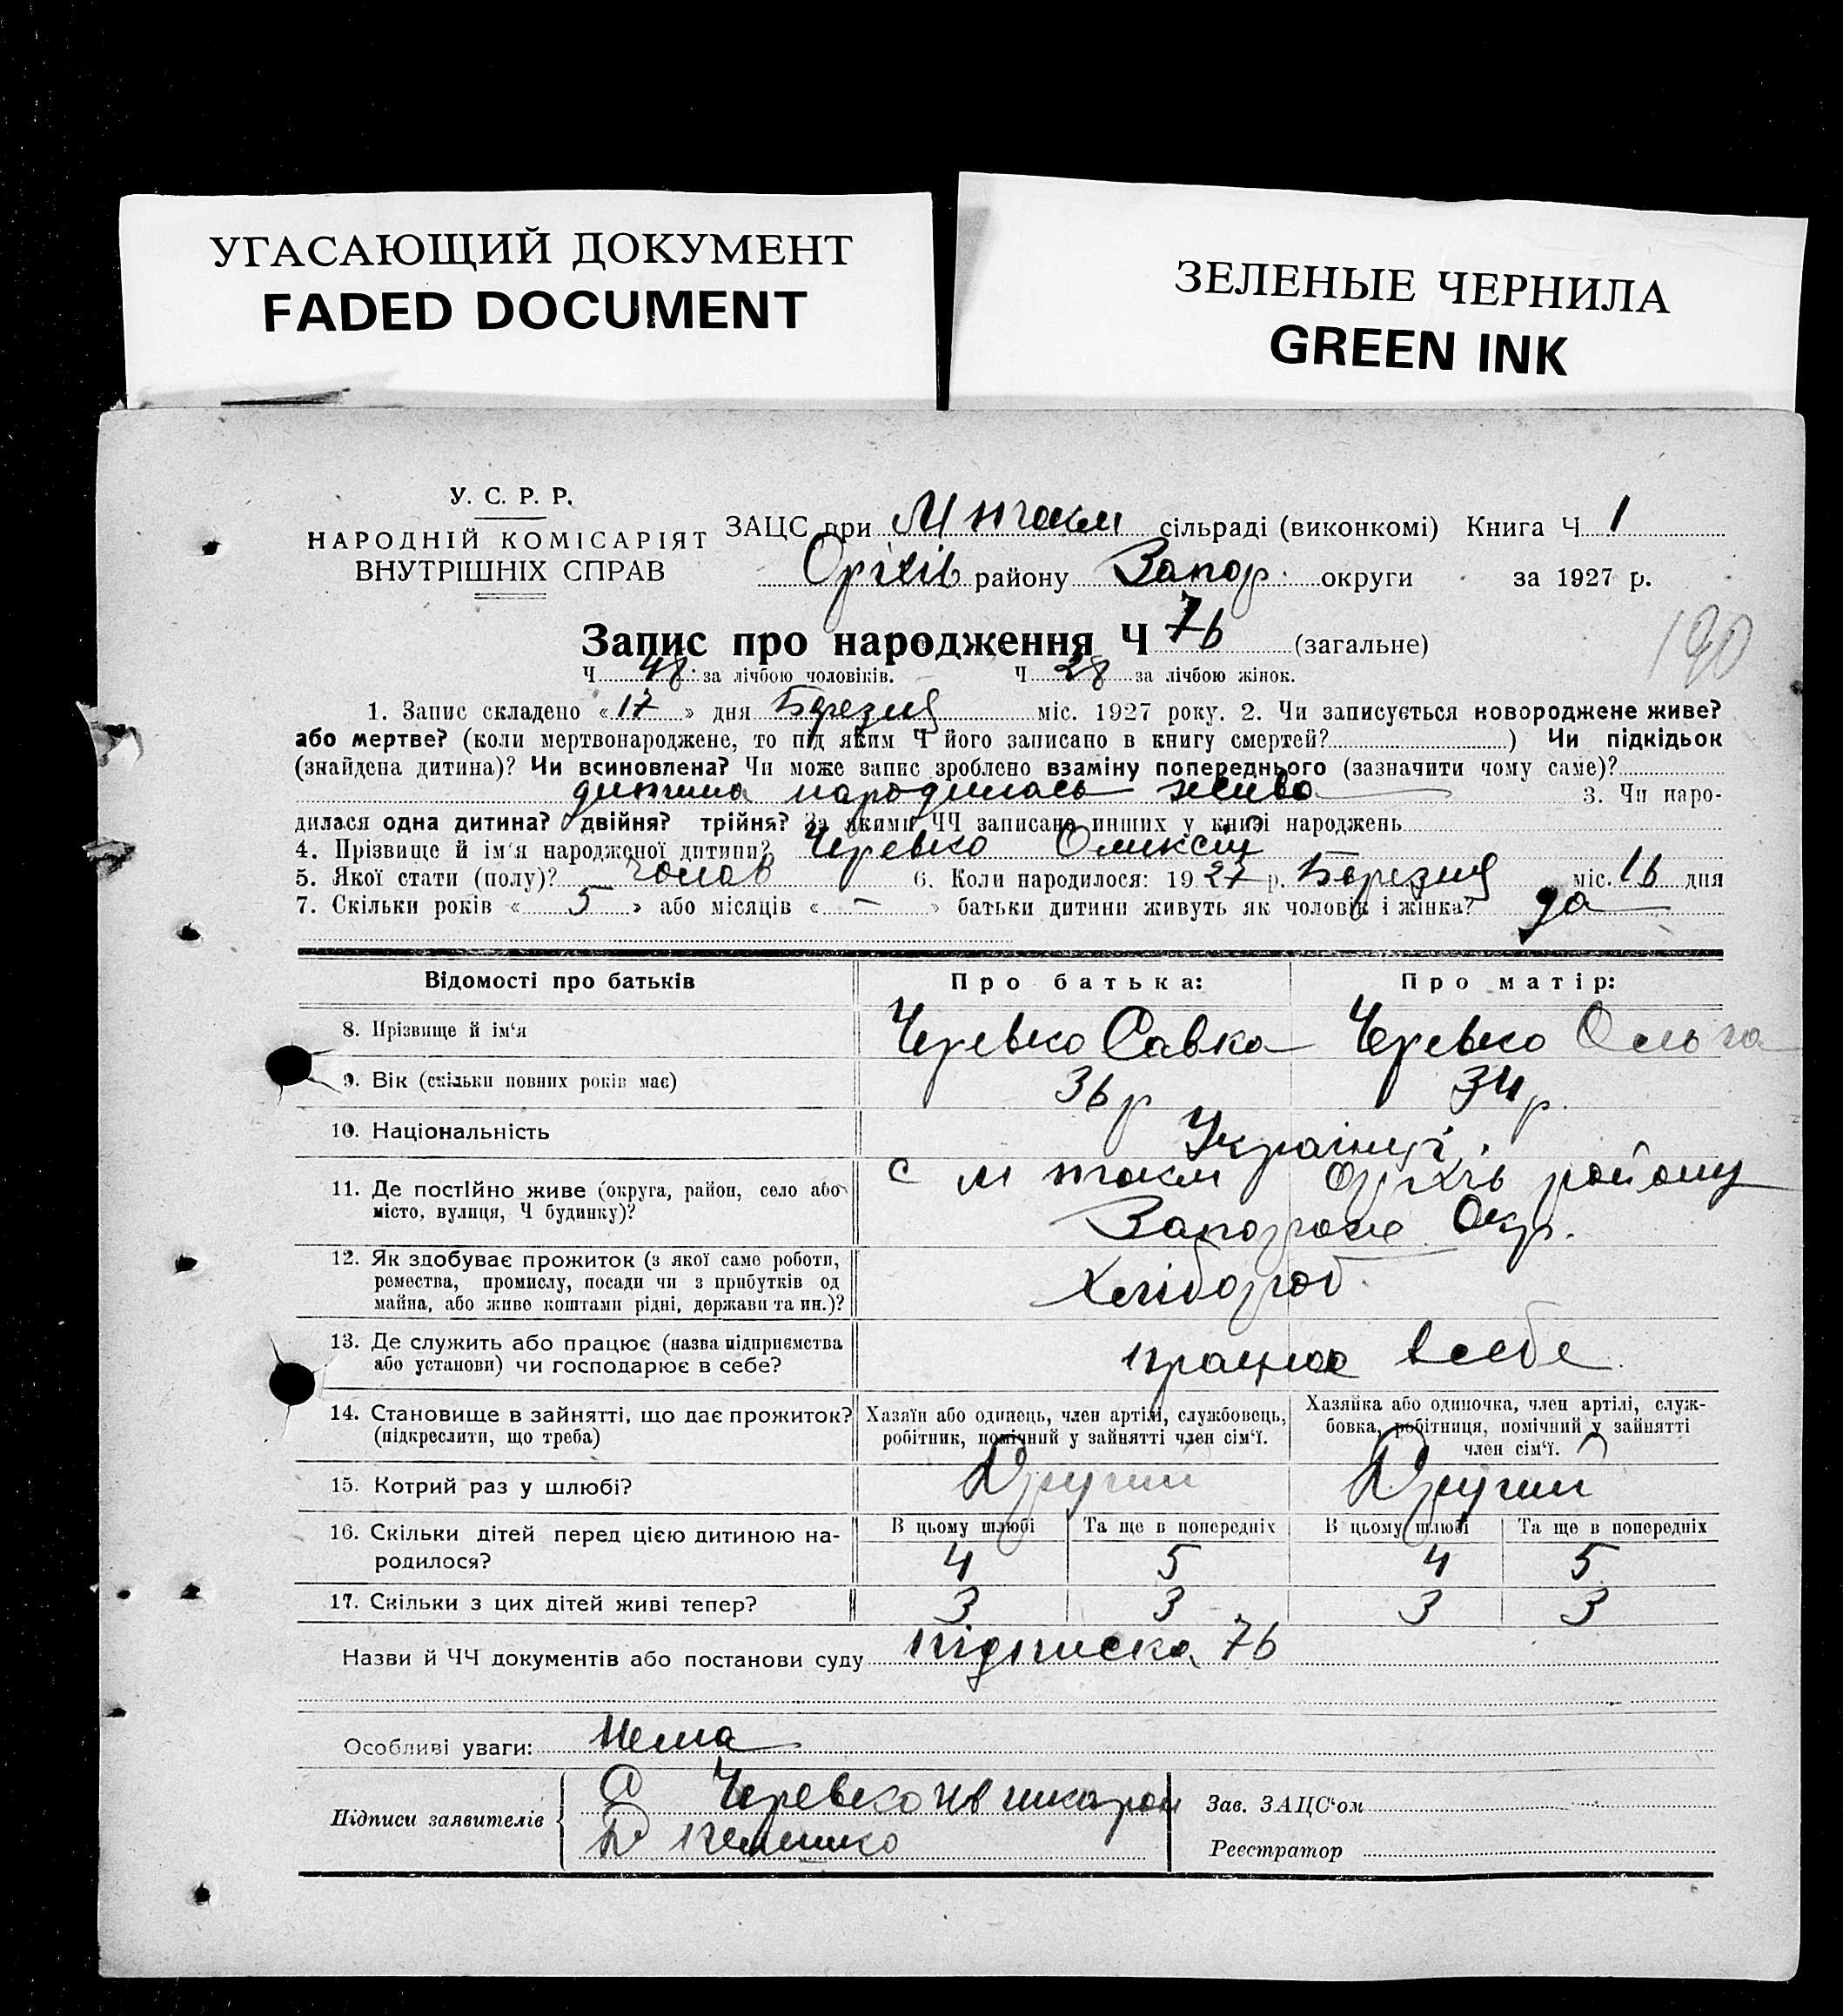 УГАСАЮЩИЙ ДОКУМЕНТ
FADED DOCUMENT
ЗЕЛЕНЫЕ ЧЕРНИЛА
GREEN INK
У. С. Р. Р.
НАРОДНІЙ КОМІСАРІЯТ
ВНУТРІШНІХ СПРАВ
ЗАЦС при М токм сільраді (виконкомі) Книга Ч 1
Оріхів району Запор. округи за 1927 р.
190
Запис про народження Ч 76 (загальне)
Ч 48 за лічбою чоловіків. Ч 28 за лічбою жінок.
1. Запис складено «17» дня Березня міс. 1927 року. 2. Чи записується новороджене живе?
або мертве? (коли мертвонароджене, то під яким Ч його записано в книгу смертей?) Чи підкідьок
(знайдена дитина)? Чи всиновлена? Чи може запис зроблено взаміну попереднього (зазначити чому саме)?
дитина народилась жива 3. Чи наро-
дилася одна дитина? двійня? трійня? За якими ЧЧ записано инших у книзі народжень
4. Прізвище й ім'я народженої дитини? Черевко Олексій
5. Якої стати (полу)? чолов 6. Коли народилося: 1927 р. Березня міс. 16 дня
7. Скільки років «5» або місяців «–» батьки дитини живуть як чоловік і жінка? да
Відомості про батьків Про батька: Про матір:
8. Прізвище й ім'я Черевко Савка Черевко Ольга
9. Вік (скільки повних років має) 36 р 34 р.
10. Національність Українці.
11. Де постійно живе (округа, район, село або с М токм Оріхів району
місто, вулиця, Ч будинку)? Запорож Окр.
12. Як здобуває прожиток (з якої саме роботи,
ремества, промислу, посади чи з прибутків од
майна, або живе коштами рідні, держави та ин.)? Хлібороб.
13. Де служить або працює (назва підприємства
або установи) чи господарює в себе? працює всебе
14. Становище в зайнятті, що дає прожиток? Хазяїн або одинець, член артілі, службовець, Хазяйка або одиночка, член артілі, служ-
(підкреслити, що треба) робітник, помічний у зайнятті член сім'ї. бовка, робітниця, помічний у зайнятті
член сім'ї.
15. Котрий раз у шлюбі? Другий Другий
16. Скільки дітей перед цією дитиною на- В цьому шлюбі Та ще в попередніх В цьому шлюбі Та ще в попередніх
родилося? 4 5 4 5
17. Скільки з цих дітей живі тепер? 3 3 3 3
Назви й ЧЧ документів або постанови суду підписка 76
Особливі уваги: Нема
Підписи заявителів Черевко
Зав. ЗАЦС'ом
Реєстратор